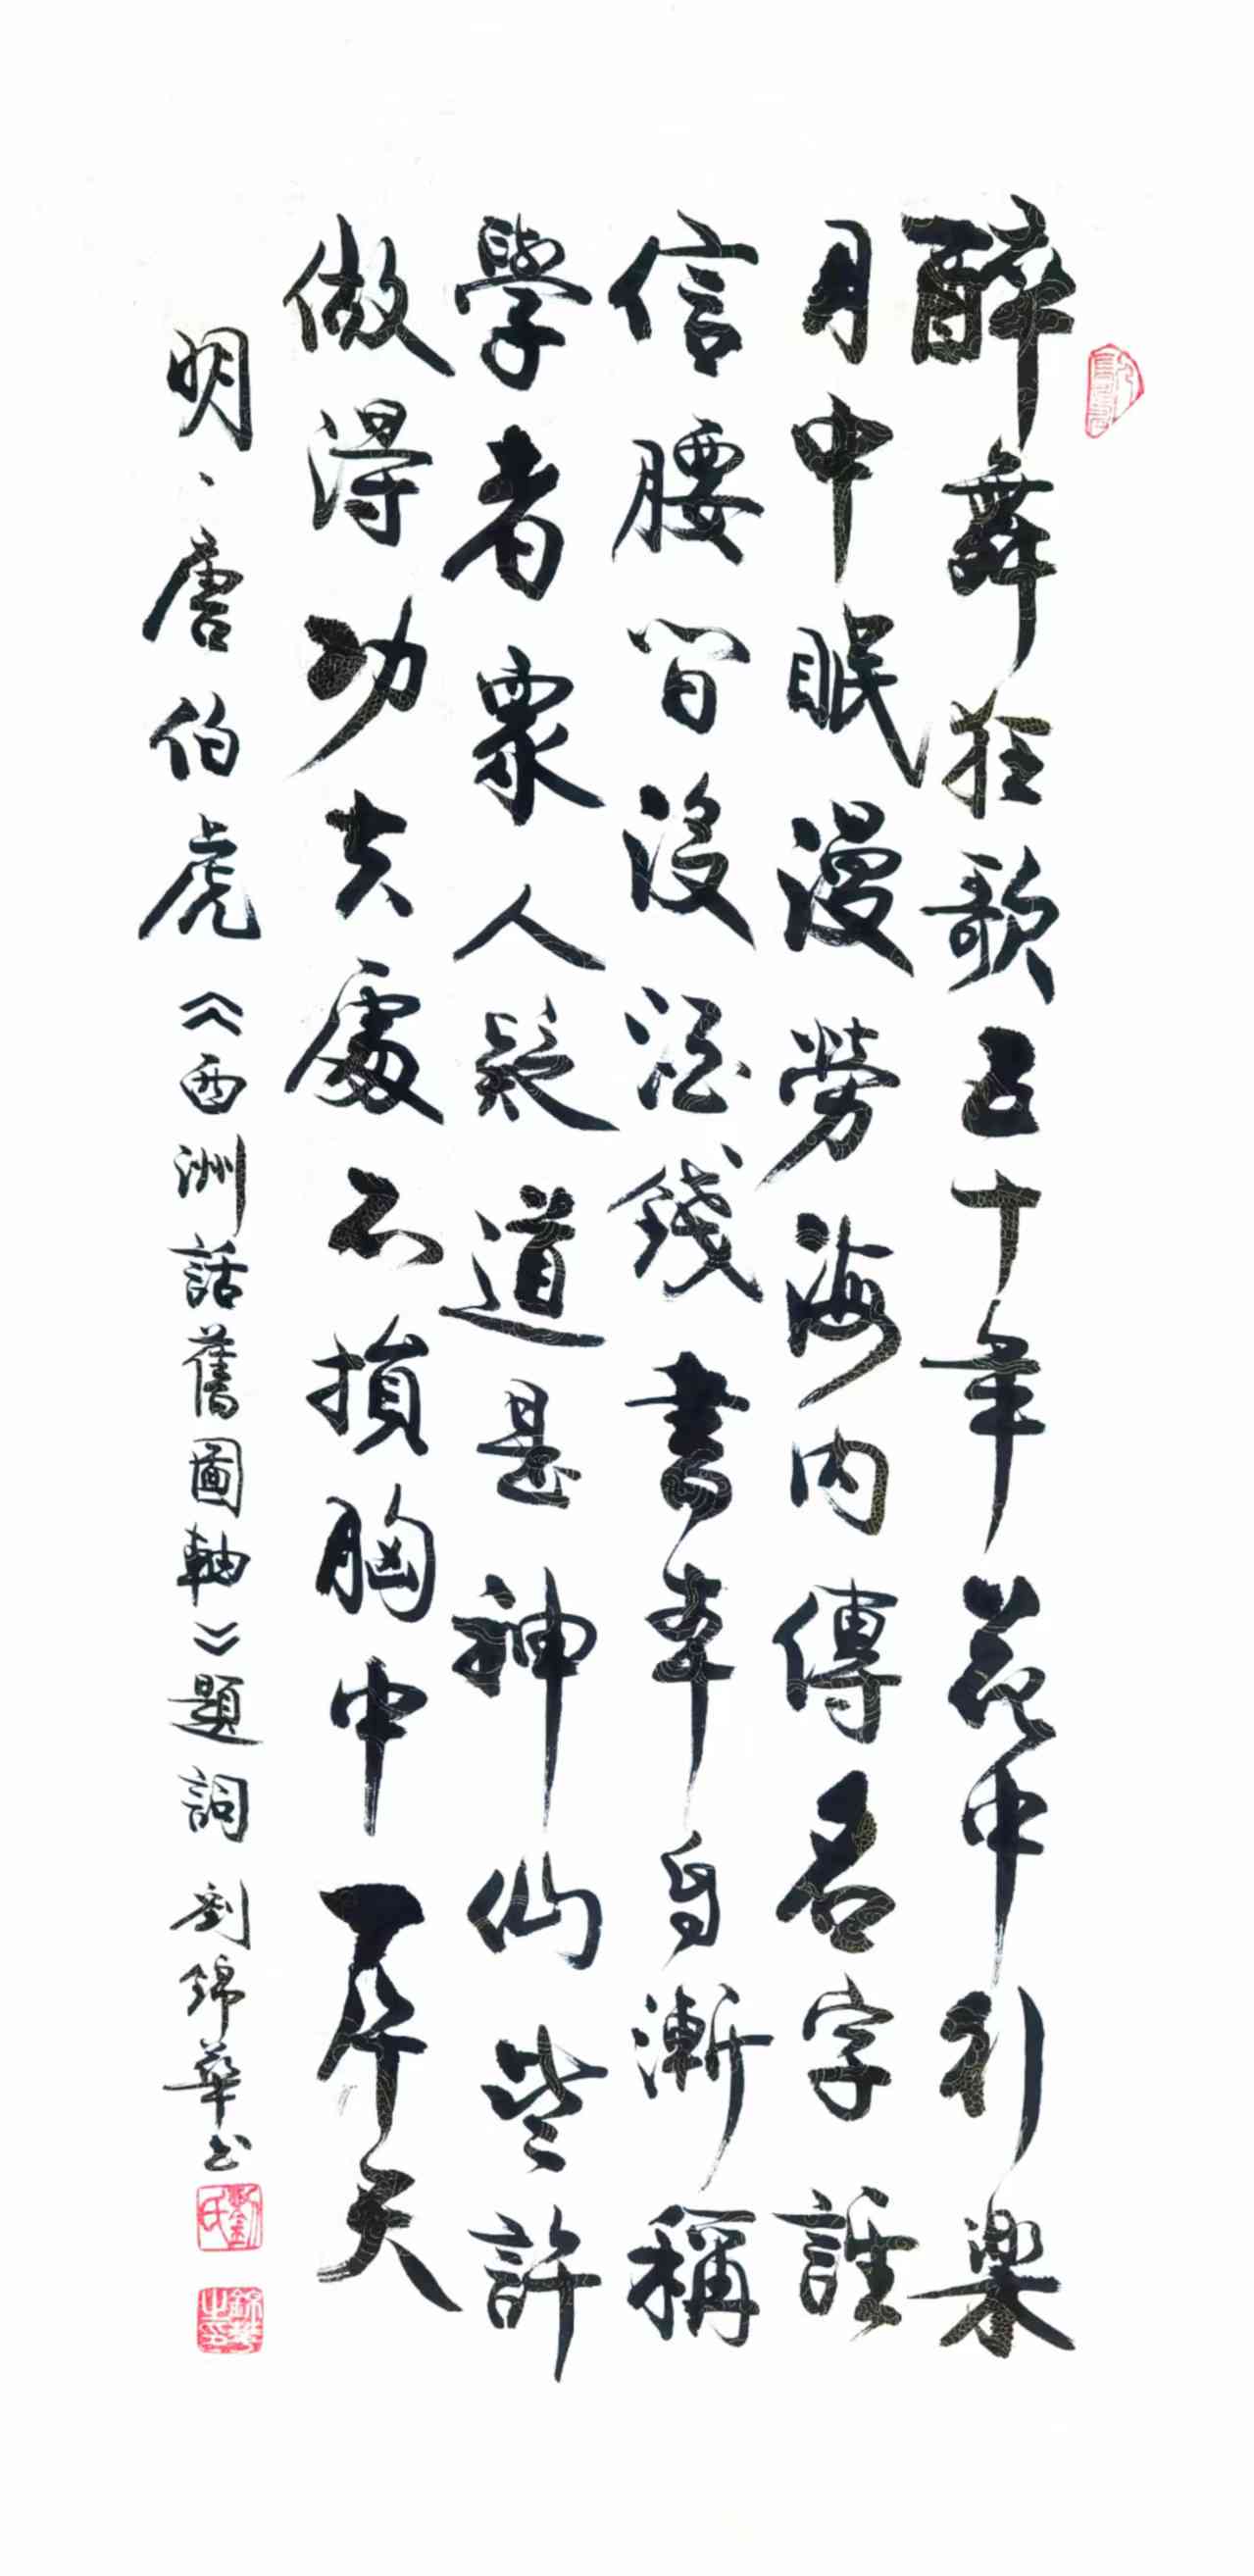 醉舞狂歌五十年花中行樂
月中眠漫勞海内傳名字誰
信腰間沒酒錢書本自漸稱
學者衆人疑道是神仙些許
做得功夫處不損胸中一片天
明、唐伯虎《西洲話舊圖軸》題詞 劉錦華书
劉氏
錦華之印